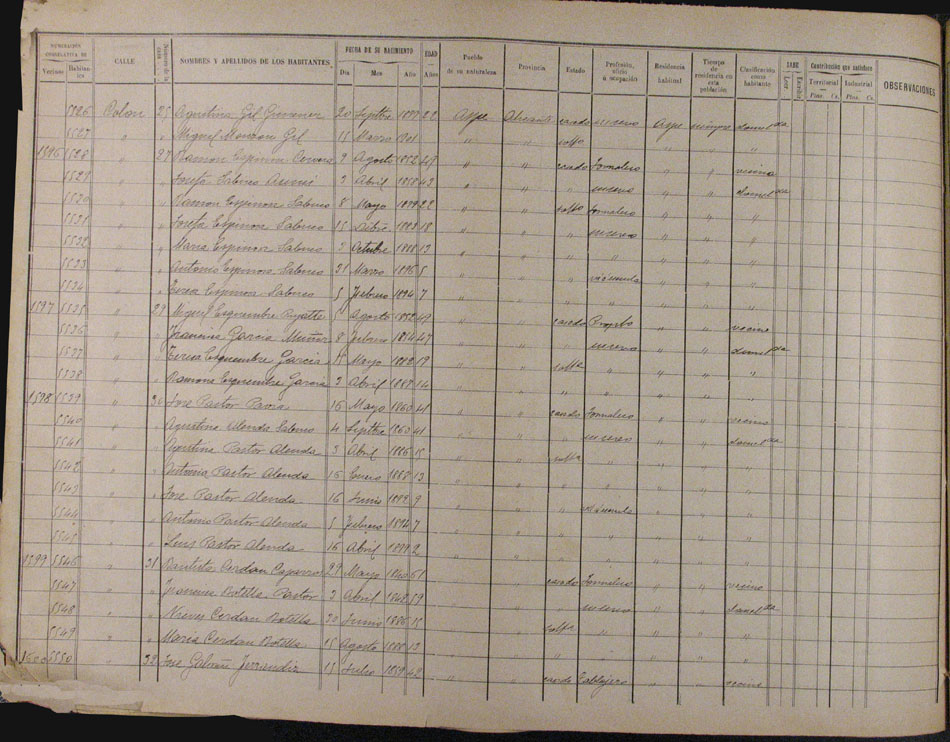 NUMERACIÓN CORRELATIVA DE
Vecinos Habitantes CALLE NOMBRES Y APELLIDOS DE LOS HABITANTES FECHA DE SU NACIMIENTO Día Mes Año EDAD Años Pueblo de su naturaleza Provincia Estado Profesión, oficio ú ocupación Residencia habitual Tiempo de residencia en esta población Clasificación como habitante SABE Leer Escribir Contribución que satisface Territorial Ptas. Cs. Industrial Ptas. Cs. OBSERVACIONES
5526 Colon 25 Agustina Gil Gimenez 20 Septbre 1879 22 Aspe Alicante casado su sexo Aspe siempre domilda
5527 " " Miguel Manzon Gil 15 Marzo 1901 " " soltº " " "
1596 5528 " 27 Ramon Espinosa Cervera 9 Agosto 1852 49 " " casado Jornalero " " vecino
5529 " " Josefa Sabuco 3 Abril 1858 43 " " " su sexo " " domilda
5530 " " Ramon Espinosa Sabuco 8 Mayo 1879 22 " " soltº Jornalero " " "
5531 " " Josefa Espinosa Sabuco 15 Dibre 1883 18 " " " su sexo " " "
5532 " " Maria Espinosa Sabuco 3 Octubre 1888 13 " " " " " " "
5533 " " Antonio Espinosa Sabuco 31 Marzo 1896 5 " " " " " "
5534 " " Teresa Espinosa Sabuco 5 Febrero 1894 7 " " " " " " "
1597 5535 " 29 Miguel Esquembre 5 Agosto 1852 49 " " casado " " vecino
5536 " " Francisca Garcia Muñoz 8 Febrero 1854 47 " " " su sexo " " domilda
5537 " " Teresa Esquembre Garcia Mayo 1882 19 " " soltª " " " "
5538 " " Ramona Esquembre Garcia 2 Abril 1887 14 " " " " " " "
1598 5539 " 30 Jose Pastor 16 Mayo 1860 41 " " casado Jornalero " " vecino
5540 " " Agustina Alenda Sabuco 4 Septbre 1860 41 " " " su sexo " " domilda
5541 " " Agustina Pastor Alenda 3 Abril 1886 15 " " soltª " " " "
5542 " " Antonia Pastor Alenda 16 Enero 1888 13 " " " " " " "
5543 " " Jose Pastor Alenda 16 Junio 1892 9 " " " " " "
5544 " " Antonio Pastor Alenda 5 Febrero 1894 7 " " " " " " "
5545 " " Luis Pastor Alenda 16 Abril 1899 2 " " " " " " "
1599 5546 " 31 Bautista Cerdan 29 Mayo 1840 61 " " casado Jornalero " " vecino
5547 " " Francisca Botella Pastor 2 Abril 1842 59 " " " su sexo " " domilda
5548 " " Nieves Cerdan Botella 30 Junio 1886 15 " " soltª " " " "
5549 " " Maria Cerdan Botella 15 Agosto 1888 13 " " " " " " "
1600 5550 " 32 Jose Galvañ Ferrandiz 15 Julio 1859 42 " " casado " " vecino